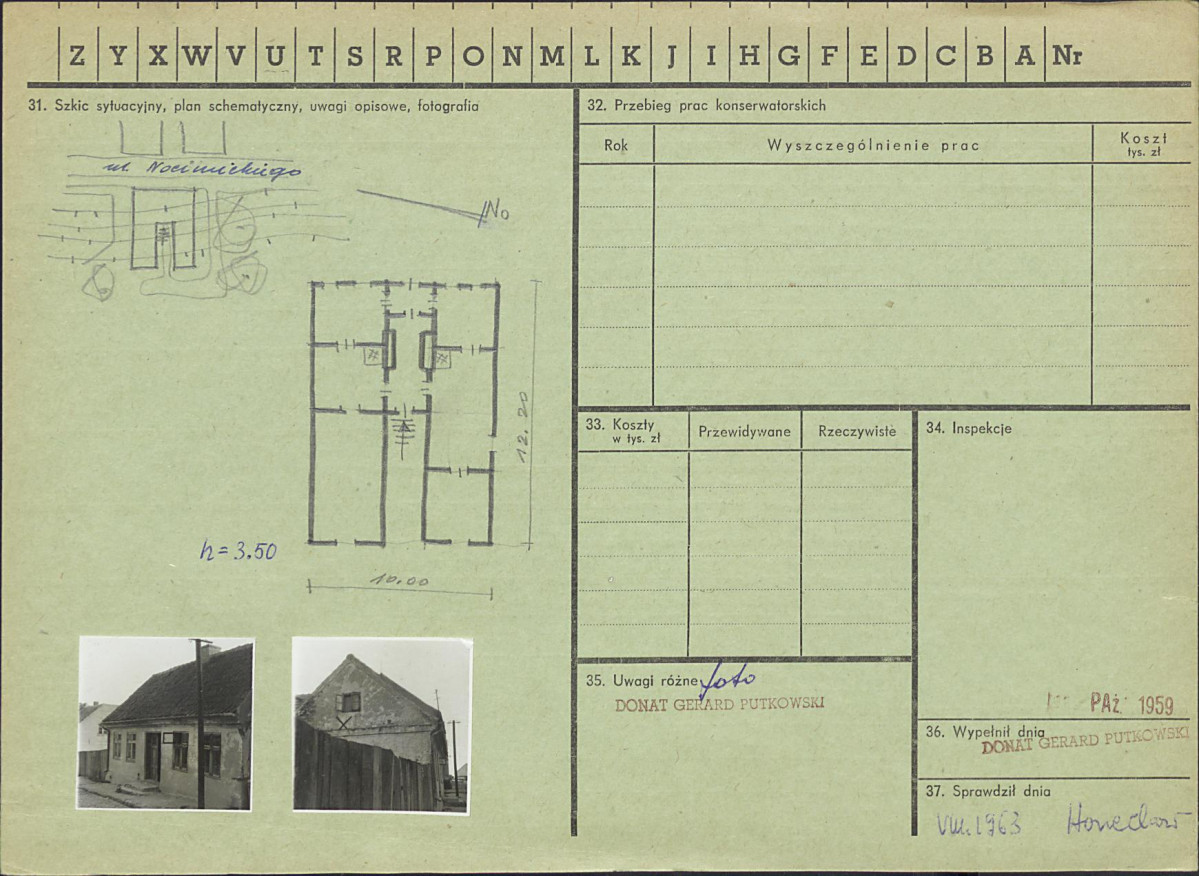 Z Y X W V U T S R P O N M L K J I H G F E D C B A Nr
31. Szkic sytuacyjny, plan schematyczny, uwagi opisowe, fotografia
ul. Nocimickiego
No
12.20
h=3.50
10.00
32. Przebieg prac konserwatorskich
Rok
Wyszczególnienie prac
Koszt
tys. zł
33. Koszty
w tys. zł
Przewidywane
Rzeczywiste
34. Inspekcje
35. Uwagi różne foto
DONAT GERARD PUTKOWSKI
PAŹ 1959
36. Wypełnił dnia
DONAT GERARD PUTKOWSKI
37. Sprawdził dnia
VIII.1963